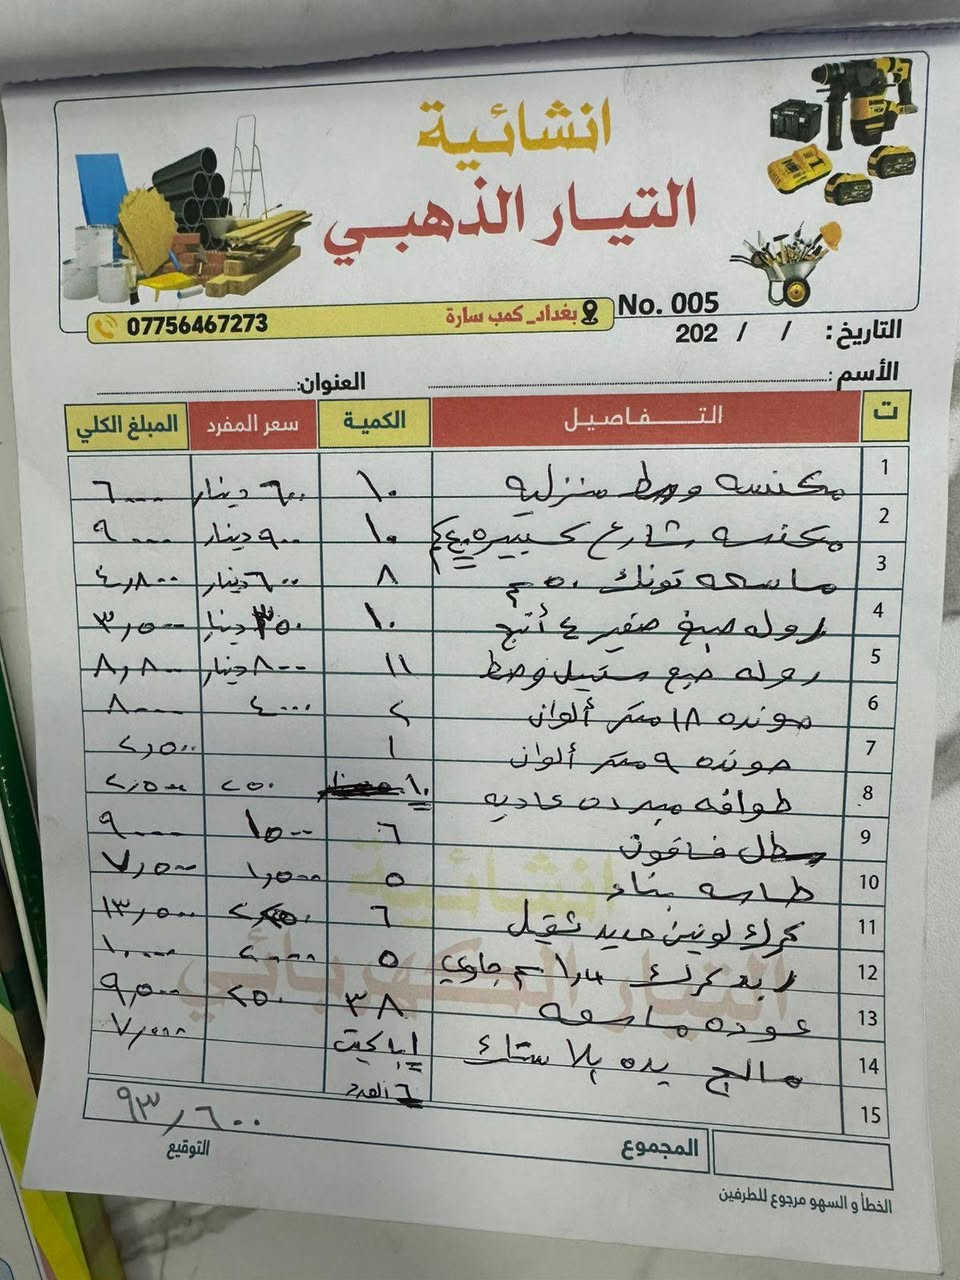 انشائية
التيار الذهبي
بغداد_ كمب سارة
07756467273
No. 005
التاريخ : / / 202
الأسم : العنوان:
ت التفاصيل الكمية سعر المفرد المبلغ الكلي
1 مكنسه وسط منزليه ١٠ ٦٠٠ دينار ٦٠٠٠
2 مكنسه شارع كبيره ١٠ ٩٠٠ دينار ٩٠٠٠
3 ماسحه تونك ٥٠ سم ٨ ٦٠٠ دينار ٤,٨٠٠
4 روله صبغ صغير ٤ أنج ١٠ ٣٥٠ دينار ٣,٥٠٠
5 روله صبغ ستيل وصط ١١ ٨٠٠ دينار ٨,٨٠٠
6 صونده ١٨ متر ألوان ٢ ٤٠٠٠ ٨٠٠٠
7 صونده ٩ متر ألوان ١ ٢,٥٠٠
8 طوافه مبرده عاديه ١٠ ٢٥٠ ٢,٥٠٠
9 سطل فافون ٦ ١٥٠٠ ٩٠٠٠
10 طاسه بناء ٥ ١,٥٠٠ ٧,٥٠٠
11 كرك لونين حديد ثقيل ٦ ١٣,٥٠٠
12 كرك جاوي ٥ ٢,٠٠٠ ١٠,٠٠٠
13 عوده ماسحه ٣٨ ٢٥٠ ٩,٥٠٠
14 مالج يده بلاستك ١ باكيت ٧,٠٠٠
15 ٦ العدد
المجموع ٩٣,٦٠٠
التوقيع
الخطأ و السهو مرجوع للطرفين
انشائية
التيار الكهربائي